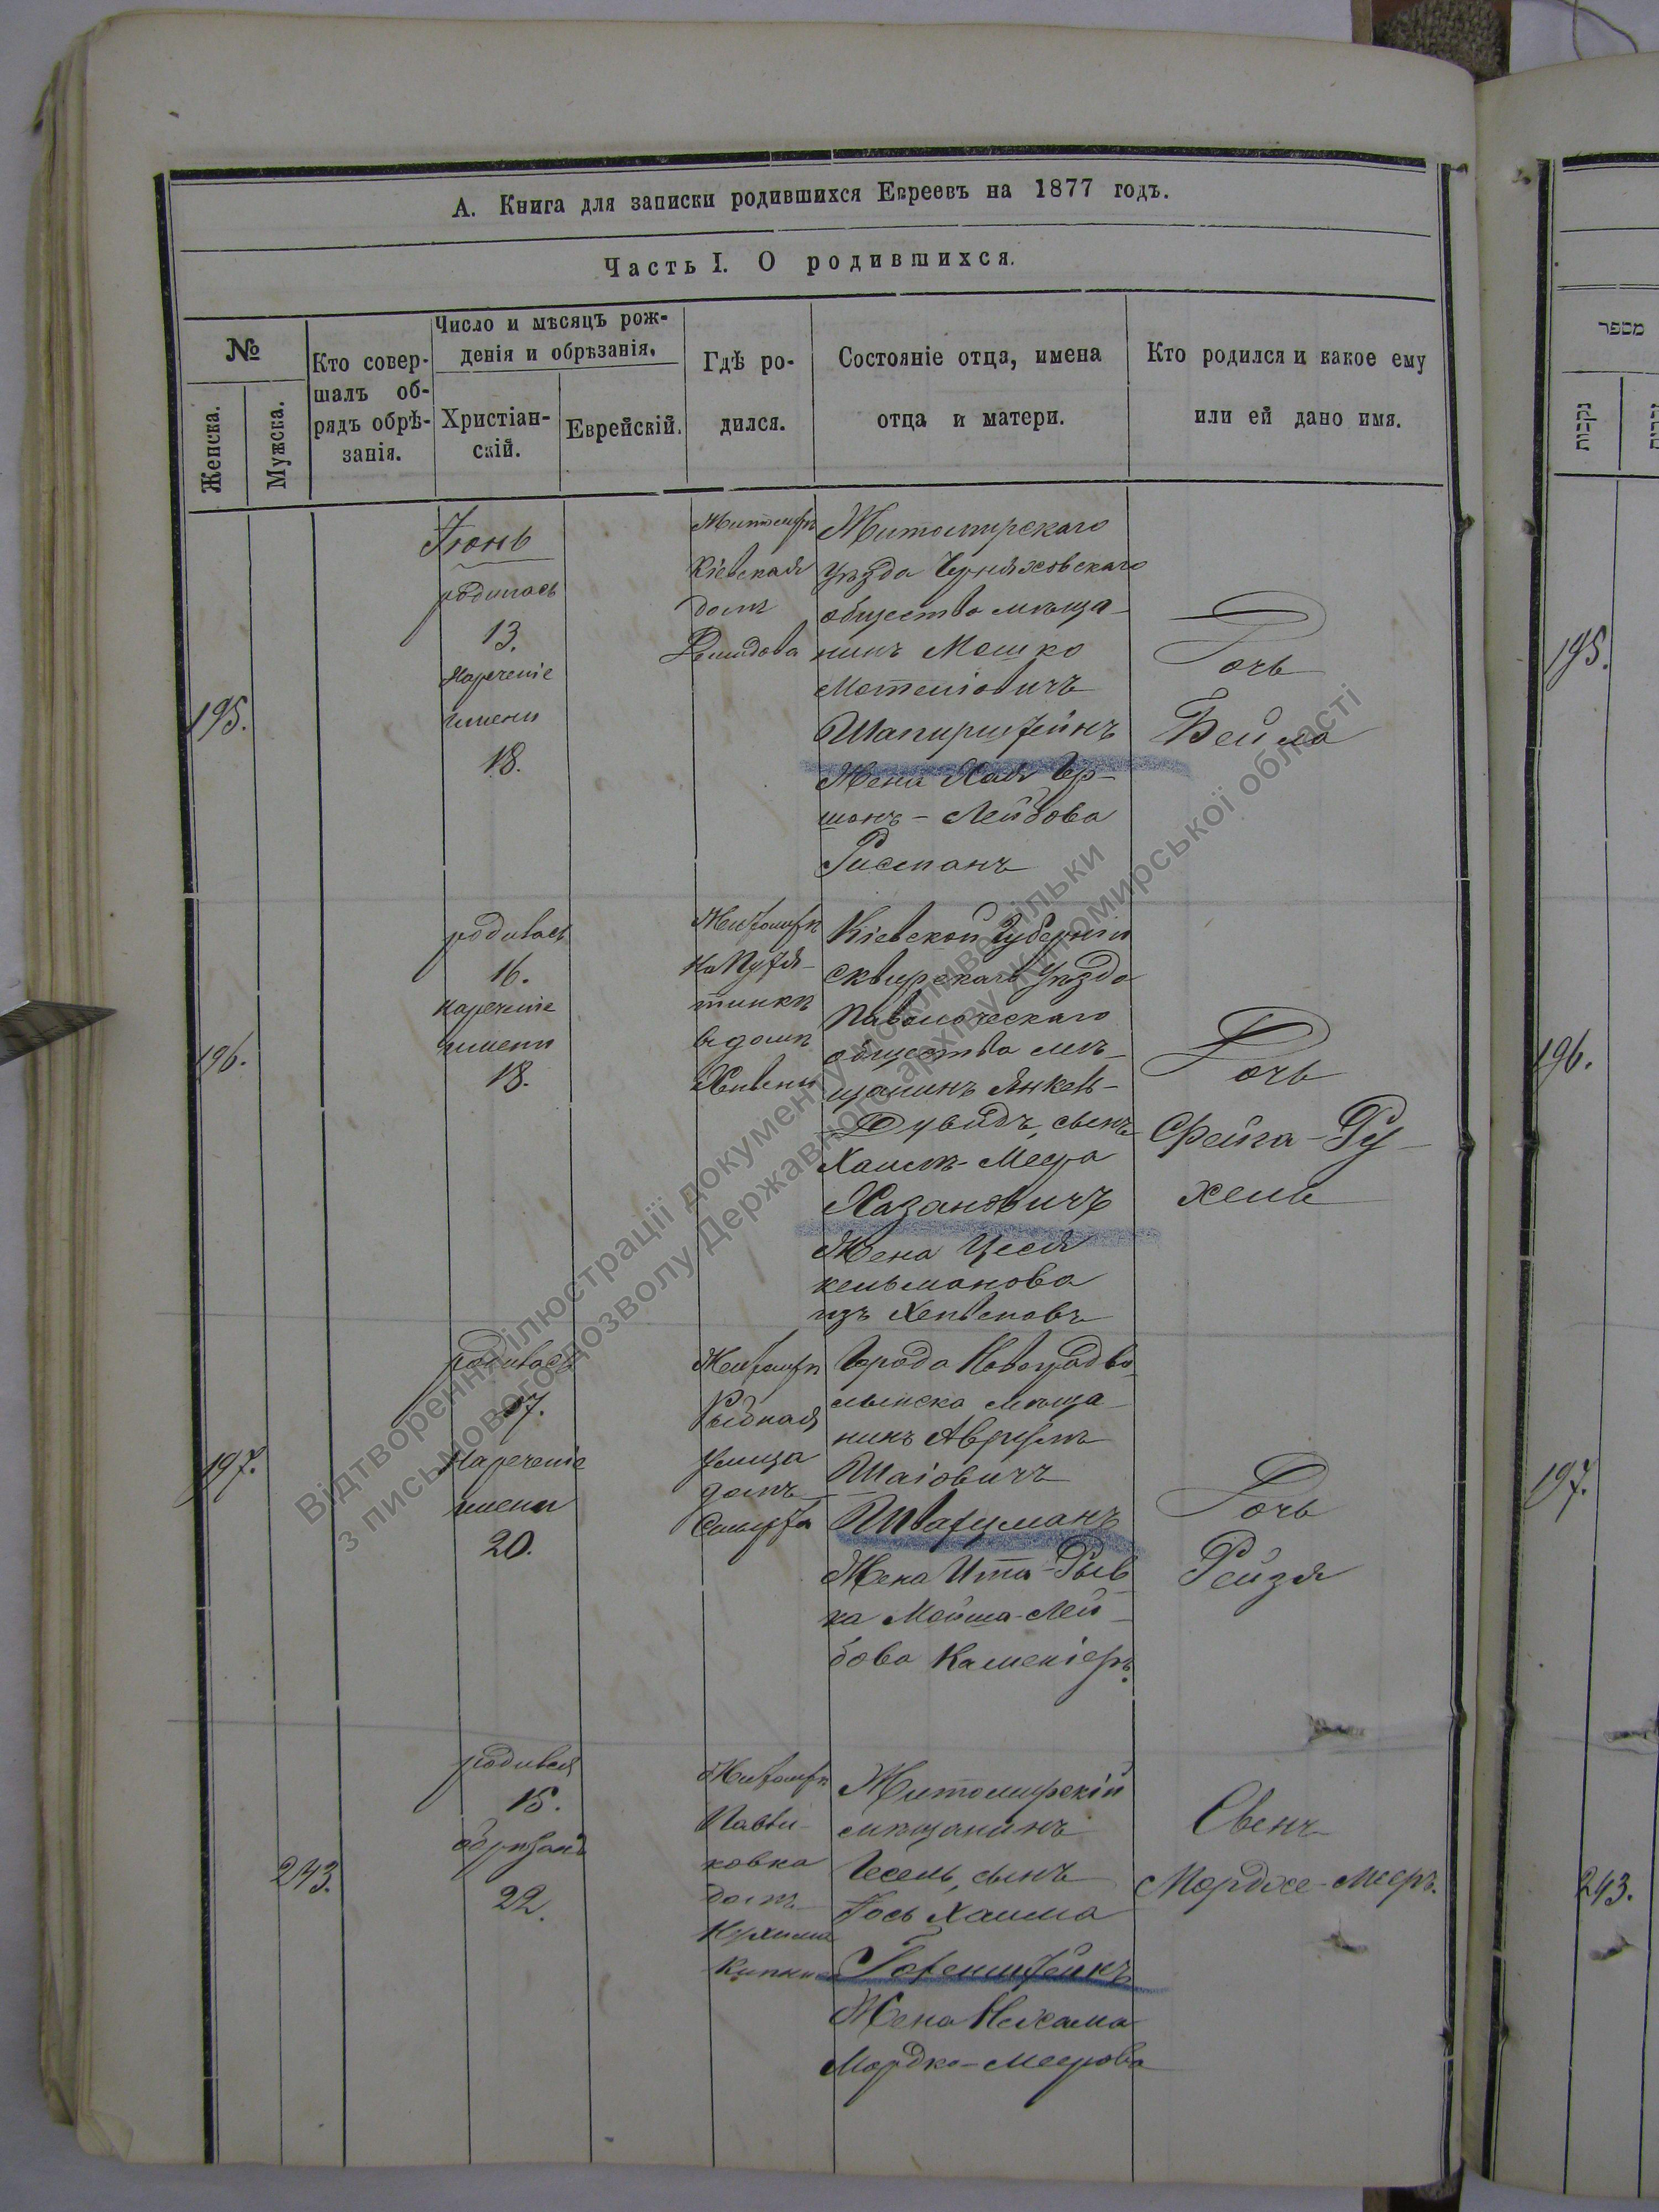 А. Книга для записки родившихся Евреевъ на 1877 годъ.
Часть I. О родившихся.
№
Женска.
Мужска.
Кто совер-
шалъ об-
рядъ обрѣ-
занія.
Число и мѣсяцъ рож-
денія и обрѣзанія.
Христіан-
скій.
Еврейскій.
Гдѣ ро-
дился.
Состояніе отца, имена
отца и матери.
Кто родился и какое ему
или ей дано имя.
195.
Іюнь
родилась
13.
Нареченіе
имени
18.
Житомиръ
Кіевская
домъ
Житомирскаго
уѣзда Черняховскаго
общества мѣща-
нинъ Мошко
Мотеліовичъ
Шапирштейнъ
Жена Хая Гер-
шонъ-Лейбова
Дочь
Бейла
196.
родилась
16.
Нареченіе
имени
18.
Житомиръ
на Путя-
тинкѣ
въ домѣ
Кіевской Губерніи
Сквирскаго уѣзда
Паволоческаго
общества мѣ-
щанинъ Янкель-
Дувидъ, сынъ
Хаимъ-Меера
Хазановичъ
Жена Цеся
кельманова
изъ
Дочь
Фейга-Ру-
хель
197.
родилась
17.
Нареченіе
имени
20.
Житомиръ
Рыбная
улица
домъ
Города Новоградво-
лынска мѣща-
нинъ Аврумъ
Шаіовичъ
Швацманъ
Жена Ита-Рыв-
ка Мойша-Лей-
бова
Дочь
Рейзя
243.
родился
15.
обрѣзанъ
22.
Житомиръ
Павли-
ковка
домъ
Житомирскій
мѣщанинъ
сынъ
Гось Хаима
Жена Нехама
Мордко-Меерова
Сынъ
Мордхе-Мееръ.
מספר
נקבות
195.
196.
197.
243.
Відтворення ілюстрації документу можливе тільки
з письмового дозволу Державного архіву Житомирської області